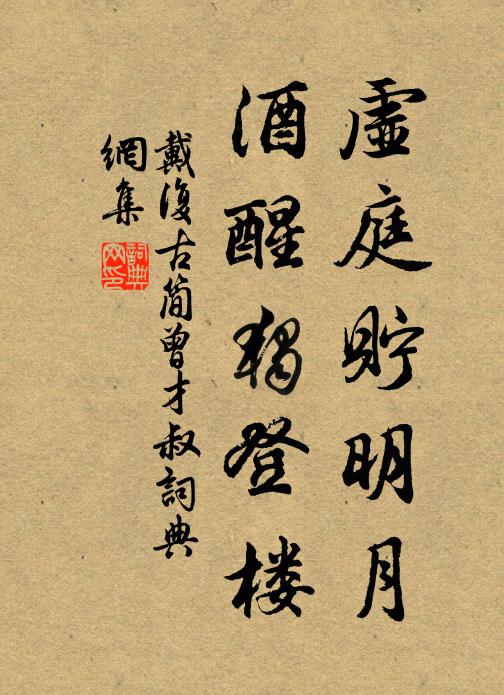 虛庭貯明月
酒醒獨登楼
戴復古簡曾才叔詞典
網集
詞典網印